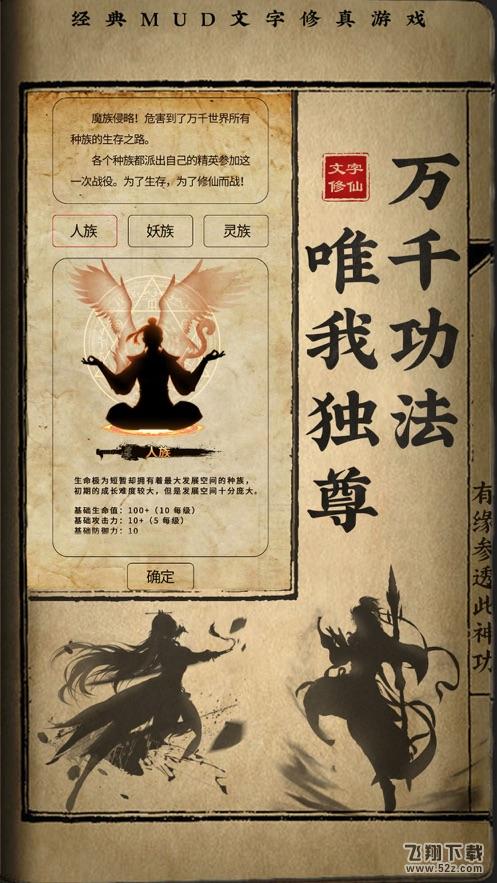 经典MUD文字修真游戏
魔族侵略！危害到了万千世界所有
种族的生存之路。
各个种族都派出自己的精英参加这
一次战役。为了生存，为了修仙而战！
人族
妖族
灵族
人族
生命极为短暂却拥有着最大发展空间的种族，
初期的成长难度较大，但是发展空间十分庞大。
基础生命值：100+（10 每级）
基础攻击力：10+（5 每级）
基础防御力：10
确定
文字
修仙
万千功法
唯我独尊
有缘参透此神功
飞翔下载
www.52z.com